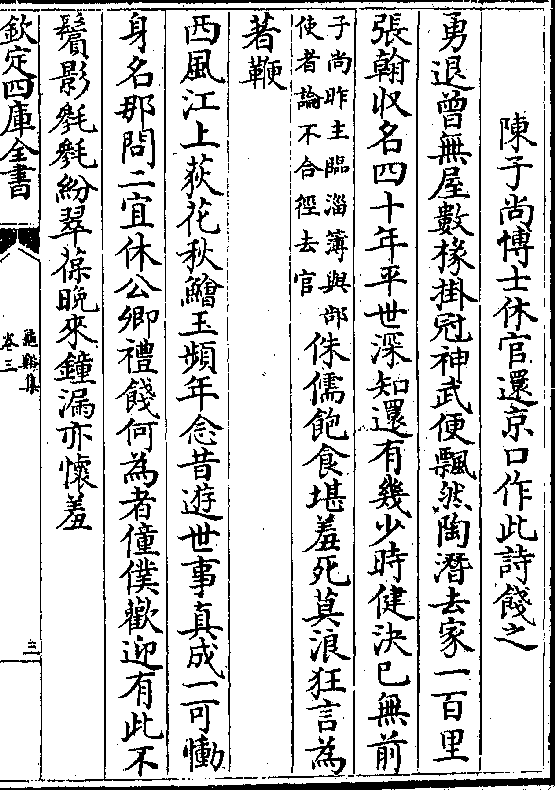 陳子尚博士休官還京口作此詩餞之
勇退曾無屋數椽掛冠神武便飄然陶潛去家一百里
張翰収名四十年平世深知還有幾少時健決已無前
子尚昨主臨淄簿與部
使者論不合徑去官
侏儒飽食堪羞死莫浪狂言為
著鞭
西風江上荻花秋鱠玉頻年念昔遊世事真成一可慟
身名那問二宜休公卿禮餞何為者僮僕歡迎有此不
鬢影毿毿紛翠葆晚來鐘漏亦懷羞
欽定四庫全書
龜谿集
卷三
三